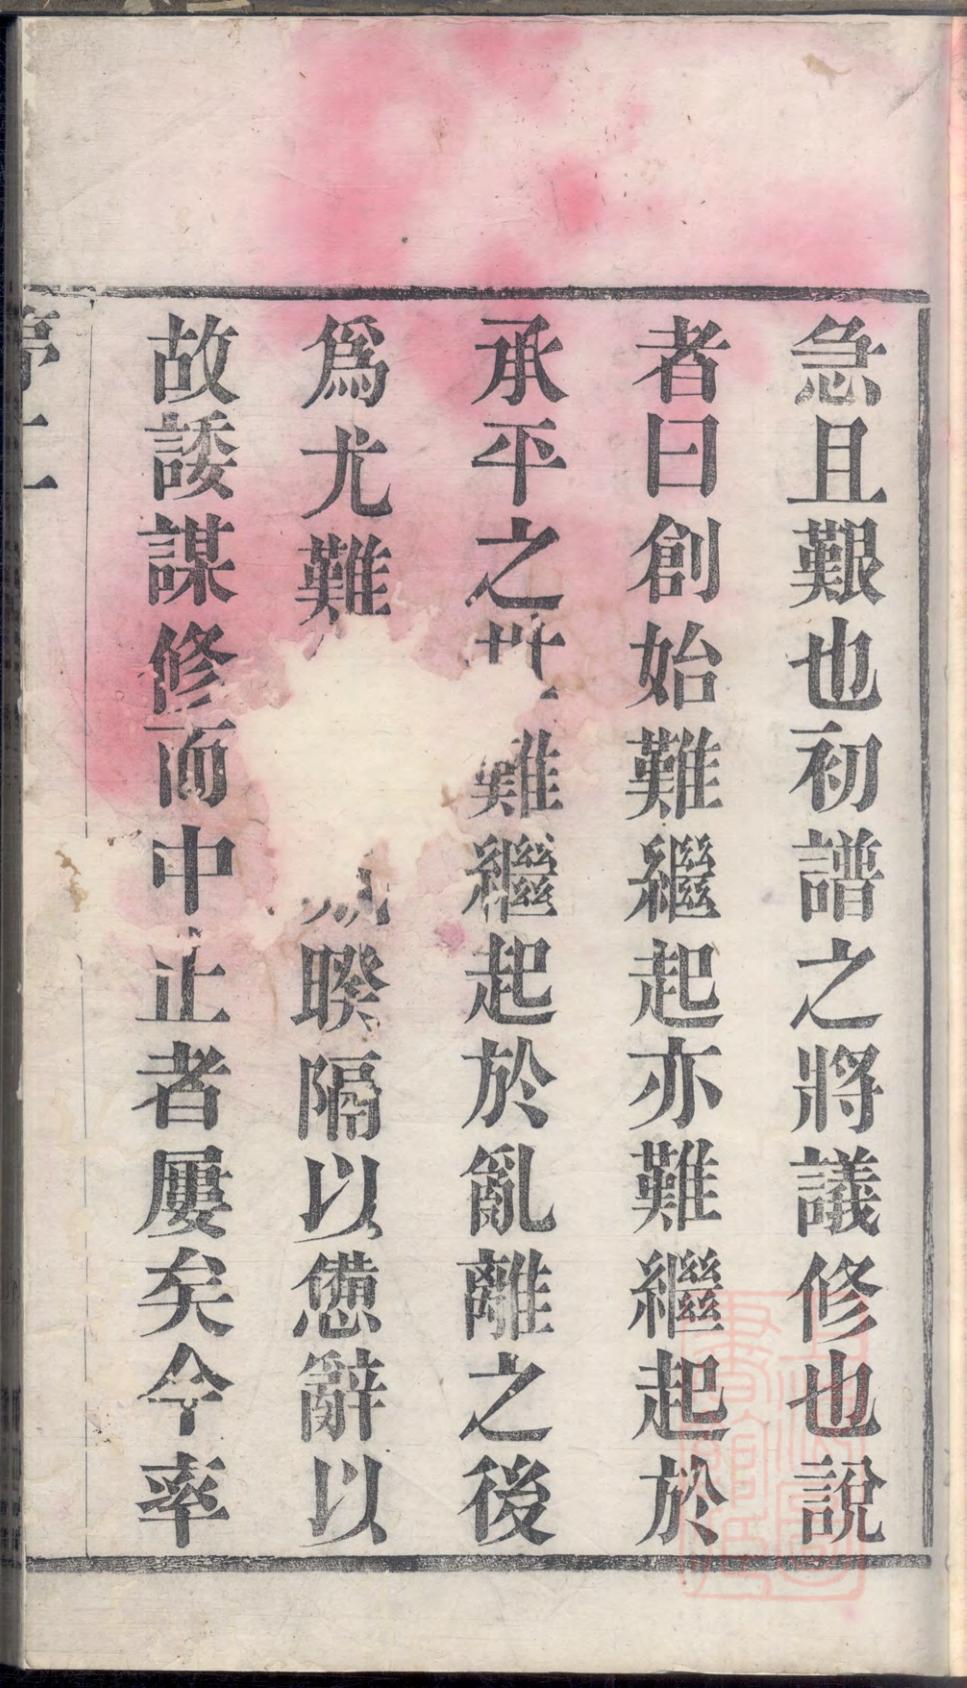 急且艱也初譜之將議修也說
者曰創始難繼起亦難繼起於
承平之世難繼起於亂離之後
爲尤難睽隔以憊辭以
故諉謀修而中止者屢矣今率
上海圖
書館藏